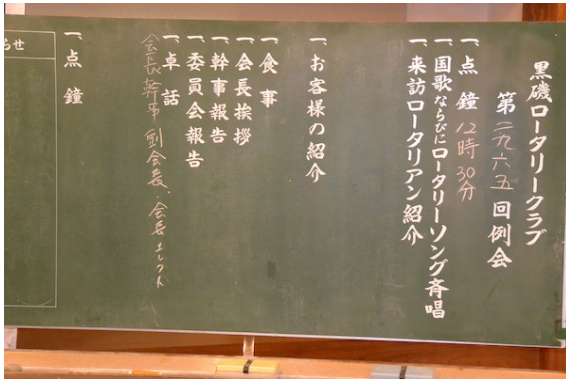 黒磯ロータリークラブ
第二九六五回例会
一、点鐘 12時30分
一、国歌ならびにロータリーソング斉唱
一、来訪ロータリアン紹介
一、お客様の紹介
一、食事
一、会長挨拶
一、幹事報告
一、委員会報告
一、卓話
会長 幹事 副会長、会長エレクト
一、点鐘
らせ